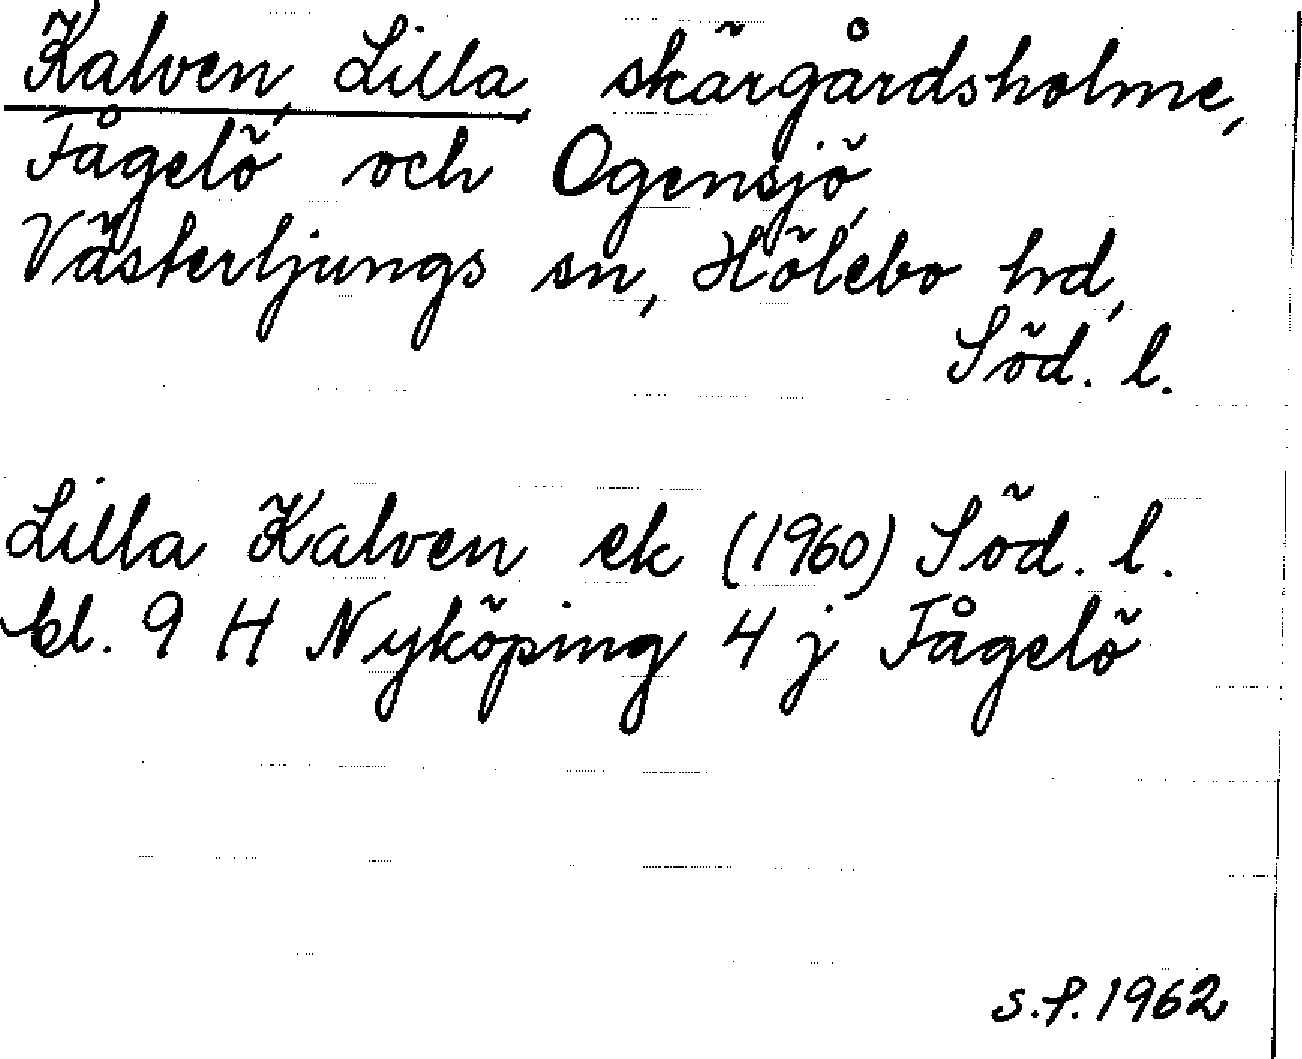 Kalven, Lilla, skärgårdsholme,
Fågelö och Ogensjö,
Västerljungs sn, Hölebo hd,
Söd. l.
Lilla Kalven ek (1960) Söd. l.
bl. 9 H Nyköping 4 j Fågelö
s.f. 1962